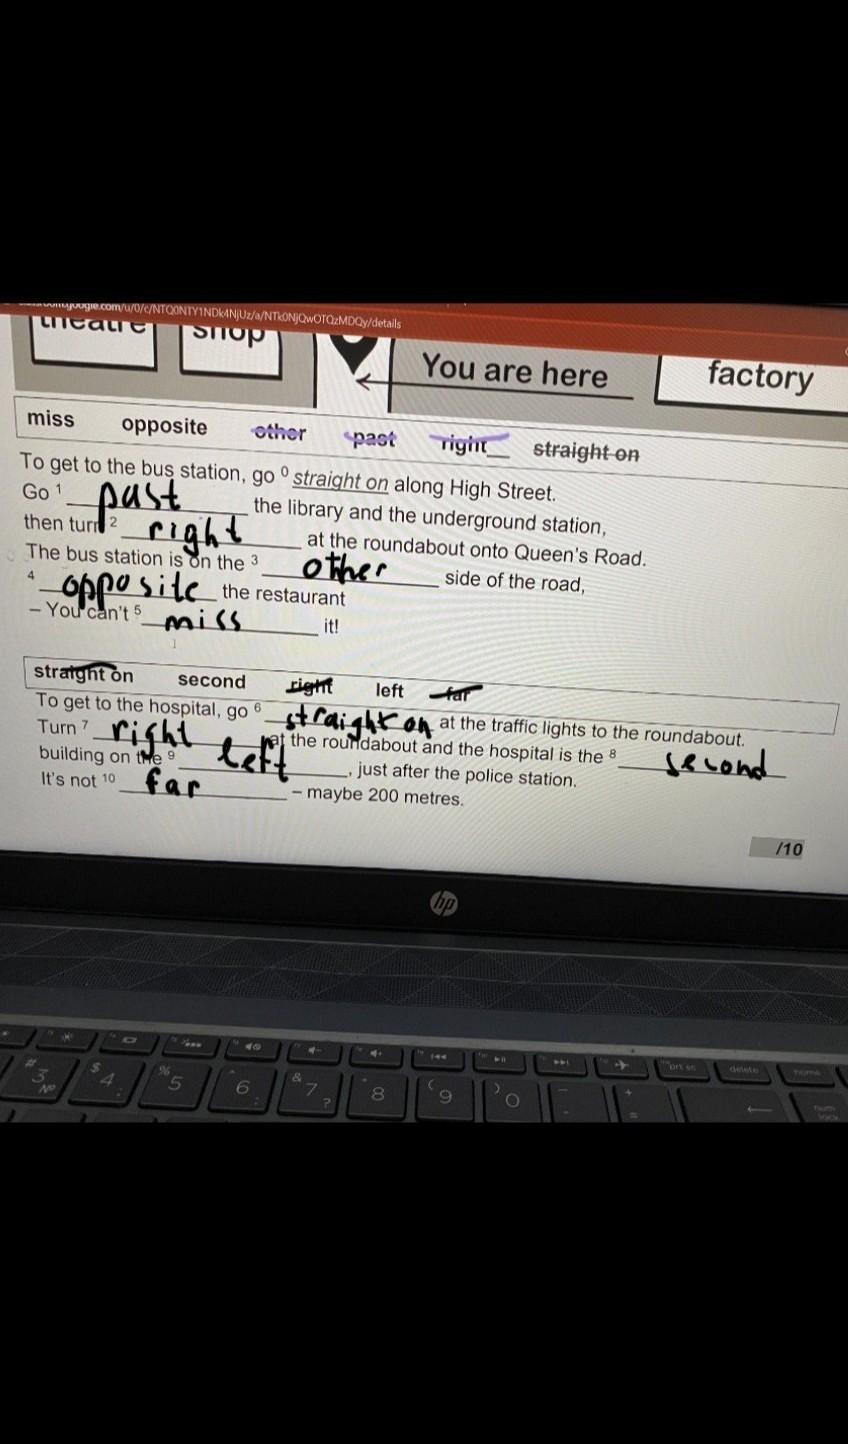 classroom.google.com/u/0/c/NTQ0NTY1NDk4NjUz/a/NTk0NjQwOTQzMDQy/details
theatre shop
You are here factory
miss opposite other past right straight on
To get to the bus station, go 0 straight on along High Street.
Go 1 past the library and the underground station,
then turn 2 right at the roundabout onto Queen's Road.
The bus station is on the 3 other side of the road,
4 opposite the restaurant
– You can't 5 miss it!
straight on second right left far
To get to the hospital, go 6 straight on at the traffic lights to the roundabout.
Turn 7 right at the roundabout and the hospital is the 8 second
building on the 9 left, just after the police station.
It's not 10 far – maybe 200 metres.
/10
hp
prt sc delete home
# 3 № $ 4 ; % 5 ^ 6 : & 7 ? * 8 ( 9 ) 0 - + = num lock